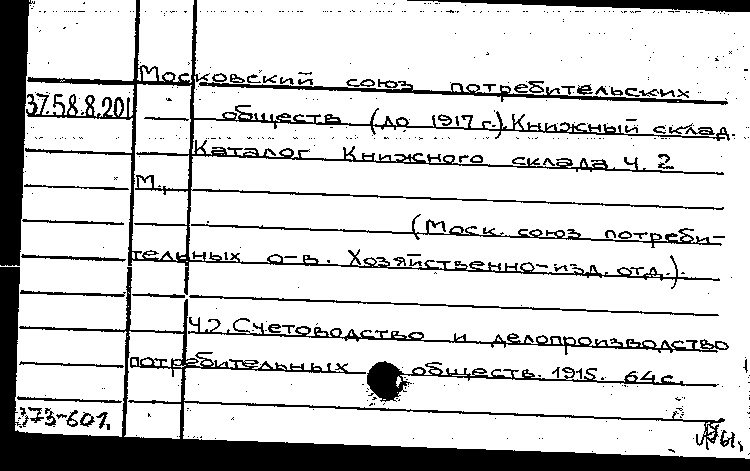 Московский союз потребительских
37.58.8.201 обществ (до 1917 г.). Книжный склад.
Каталог Книжного склада. Ч. 2
М.,
(Моск. союз потреби-
тельных о-в. Хозяйственно-изд. отд.).
Ч.2. Счетоводство и делопроизводство
потребительных обществ. 1915. 64 с.
373-601.